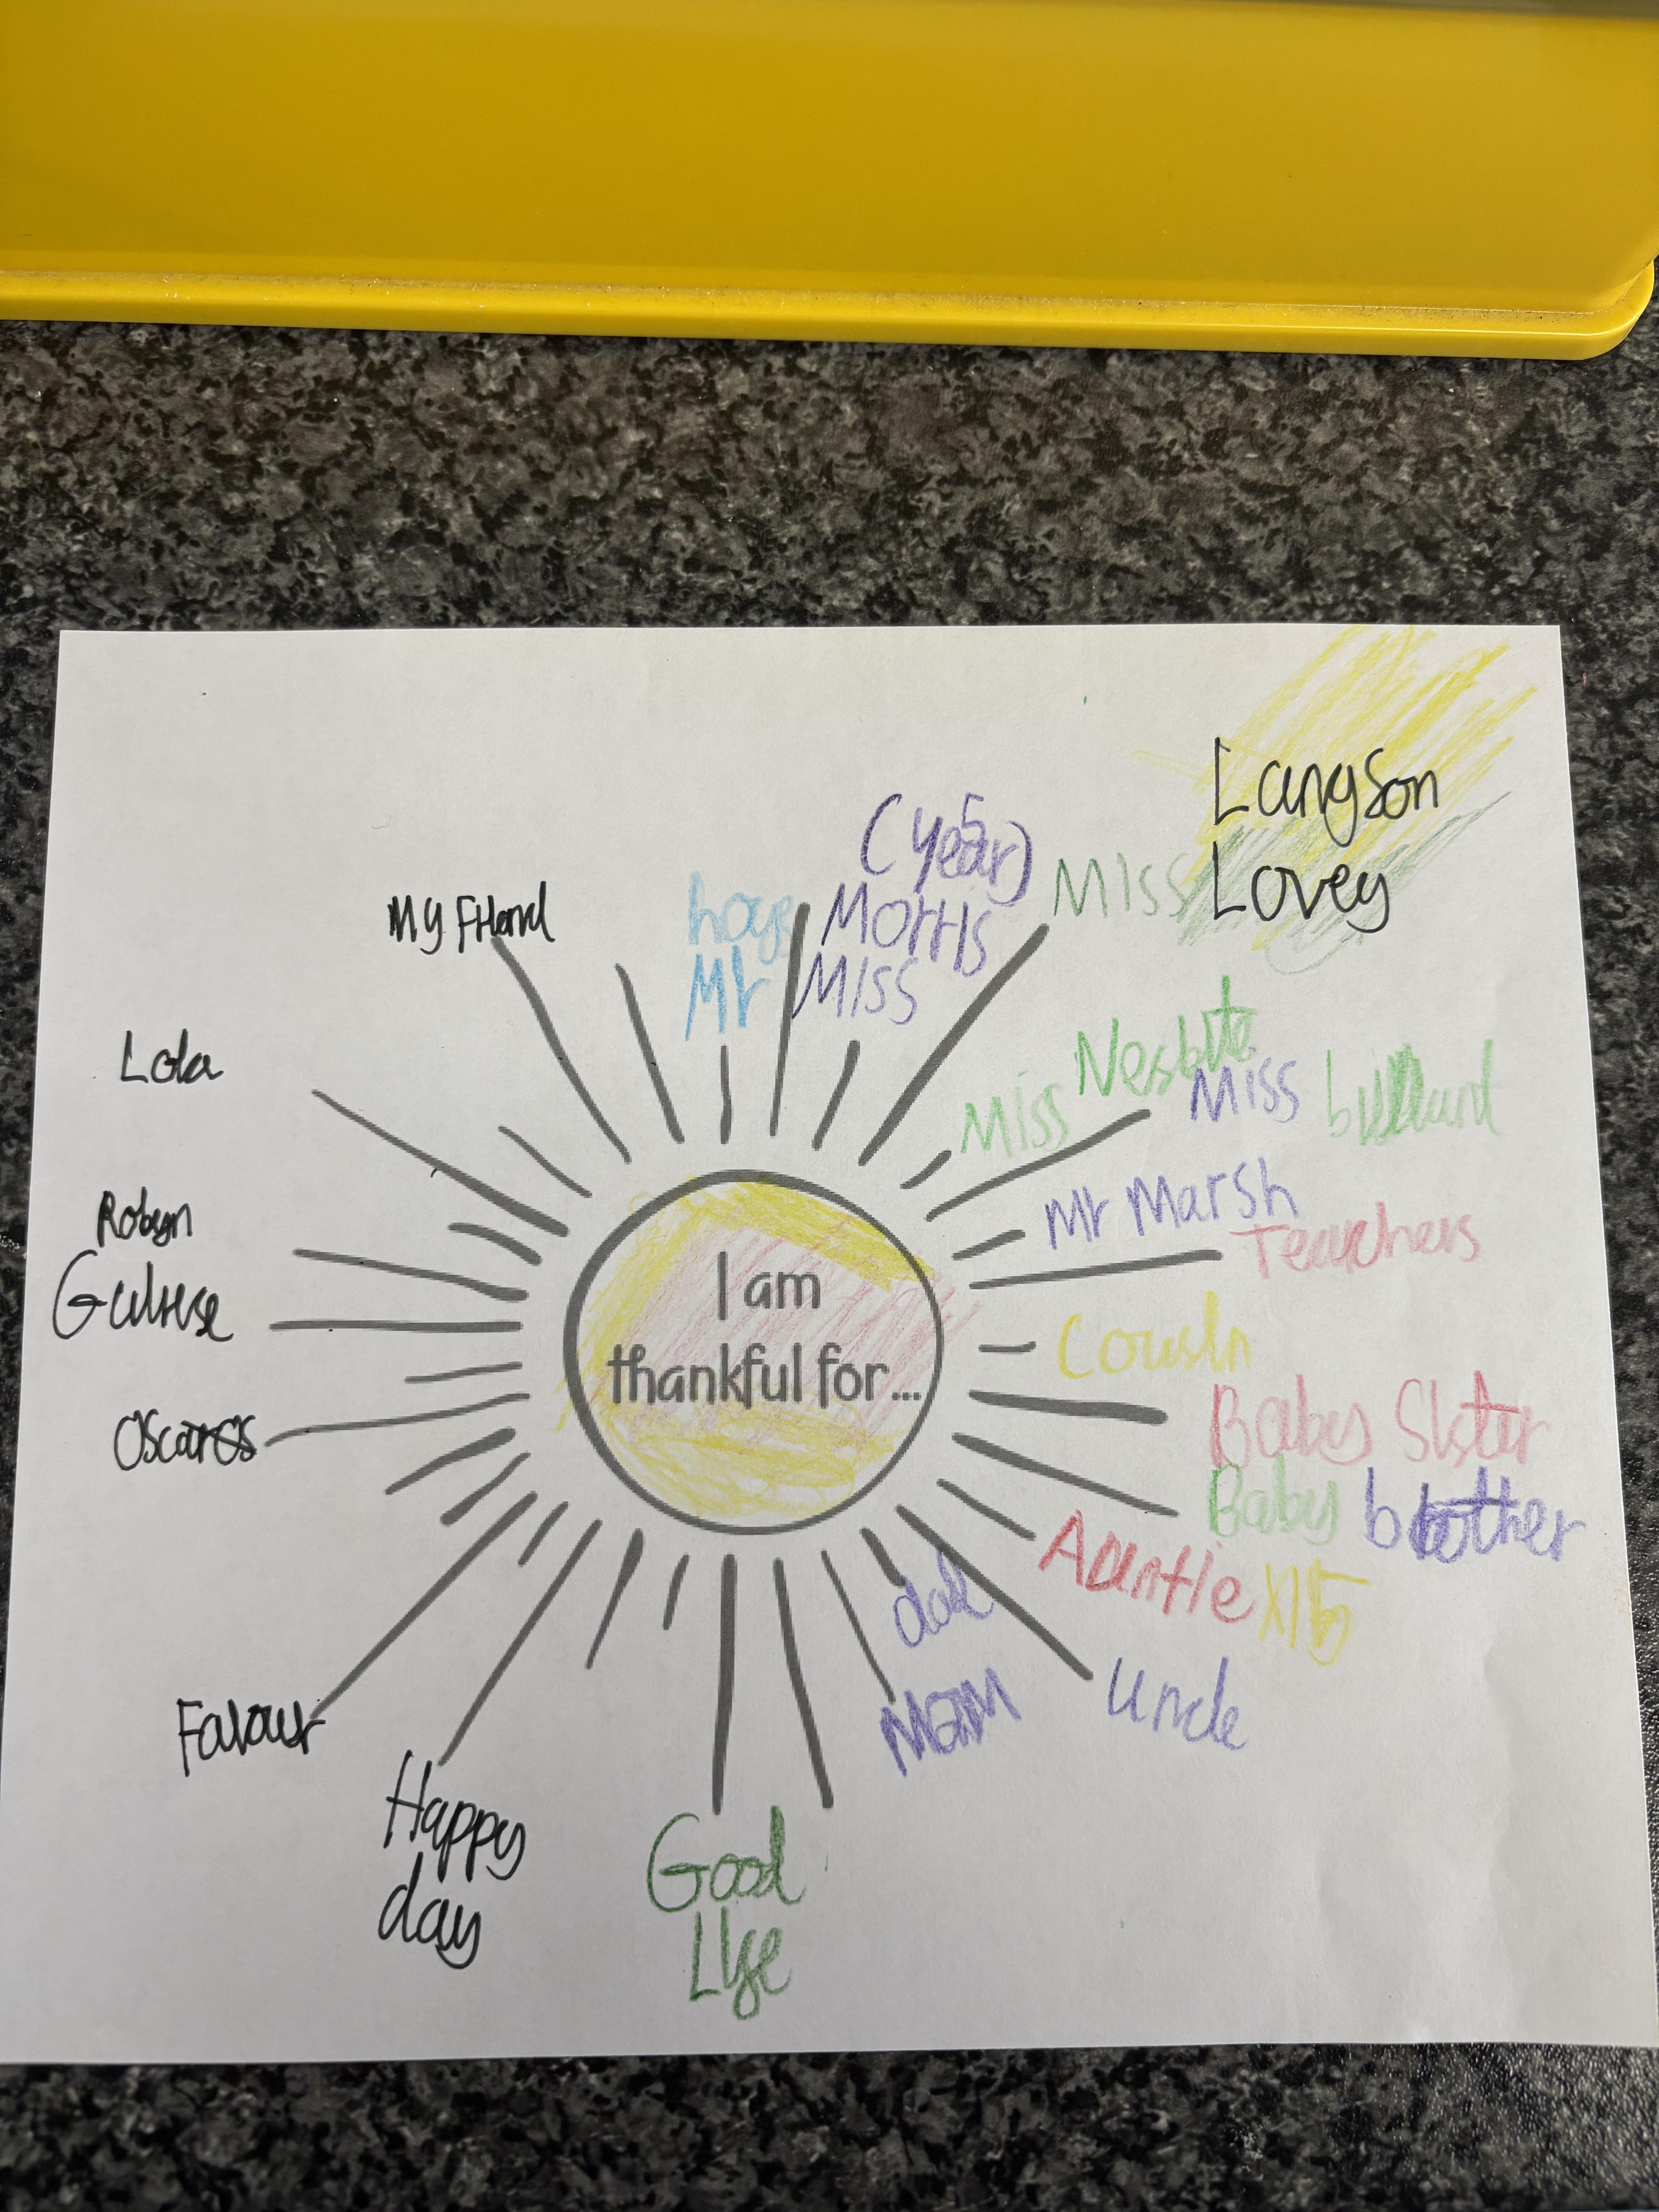 Langson
Lovey
(year 5)
Morris
Miss
hoye
Mr
Miss
My Friend
Nesbite
Miss
Miss billard
Lola
Mr Marsh
Teachers
Robyn
I am
thankful for...
Cousin
Baby Sister
Oscar
Baby brother
Auntie x15
dad
Mam
Uncle
Favour
Happy
day
Good
Life